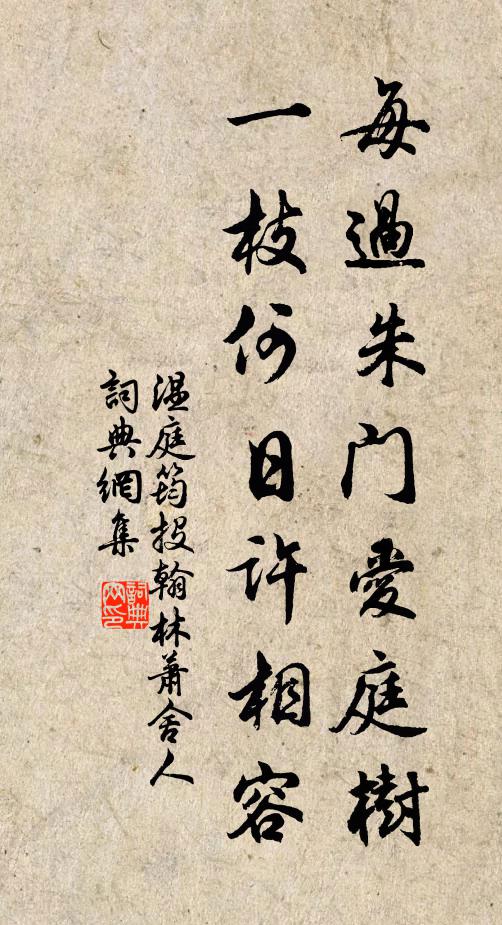 每過朱門愛庭樹
一枝何日許相容
溫庭筠投翰林蕭舍人
詞典網集
詞典
网印